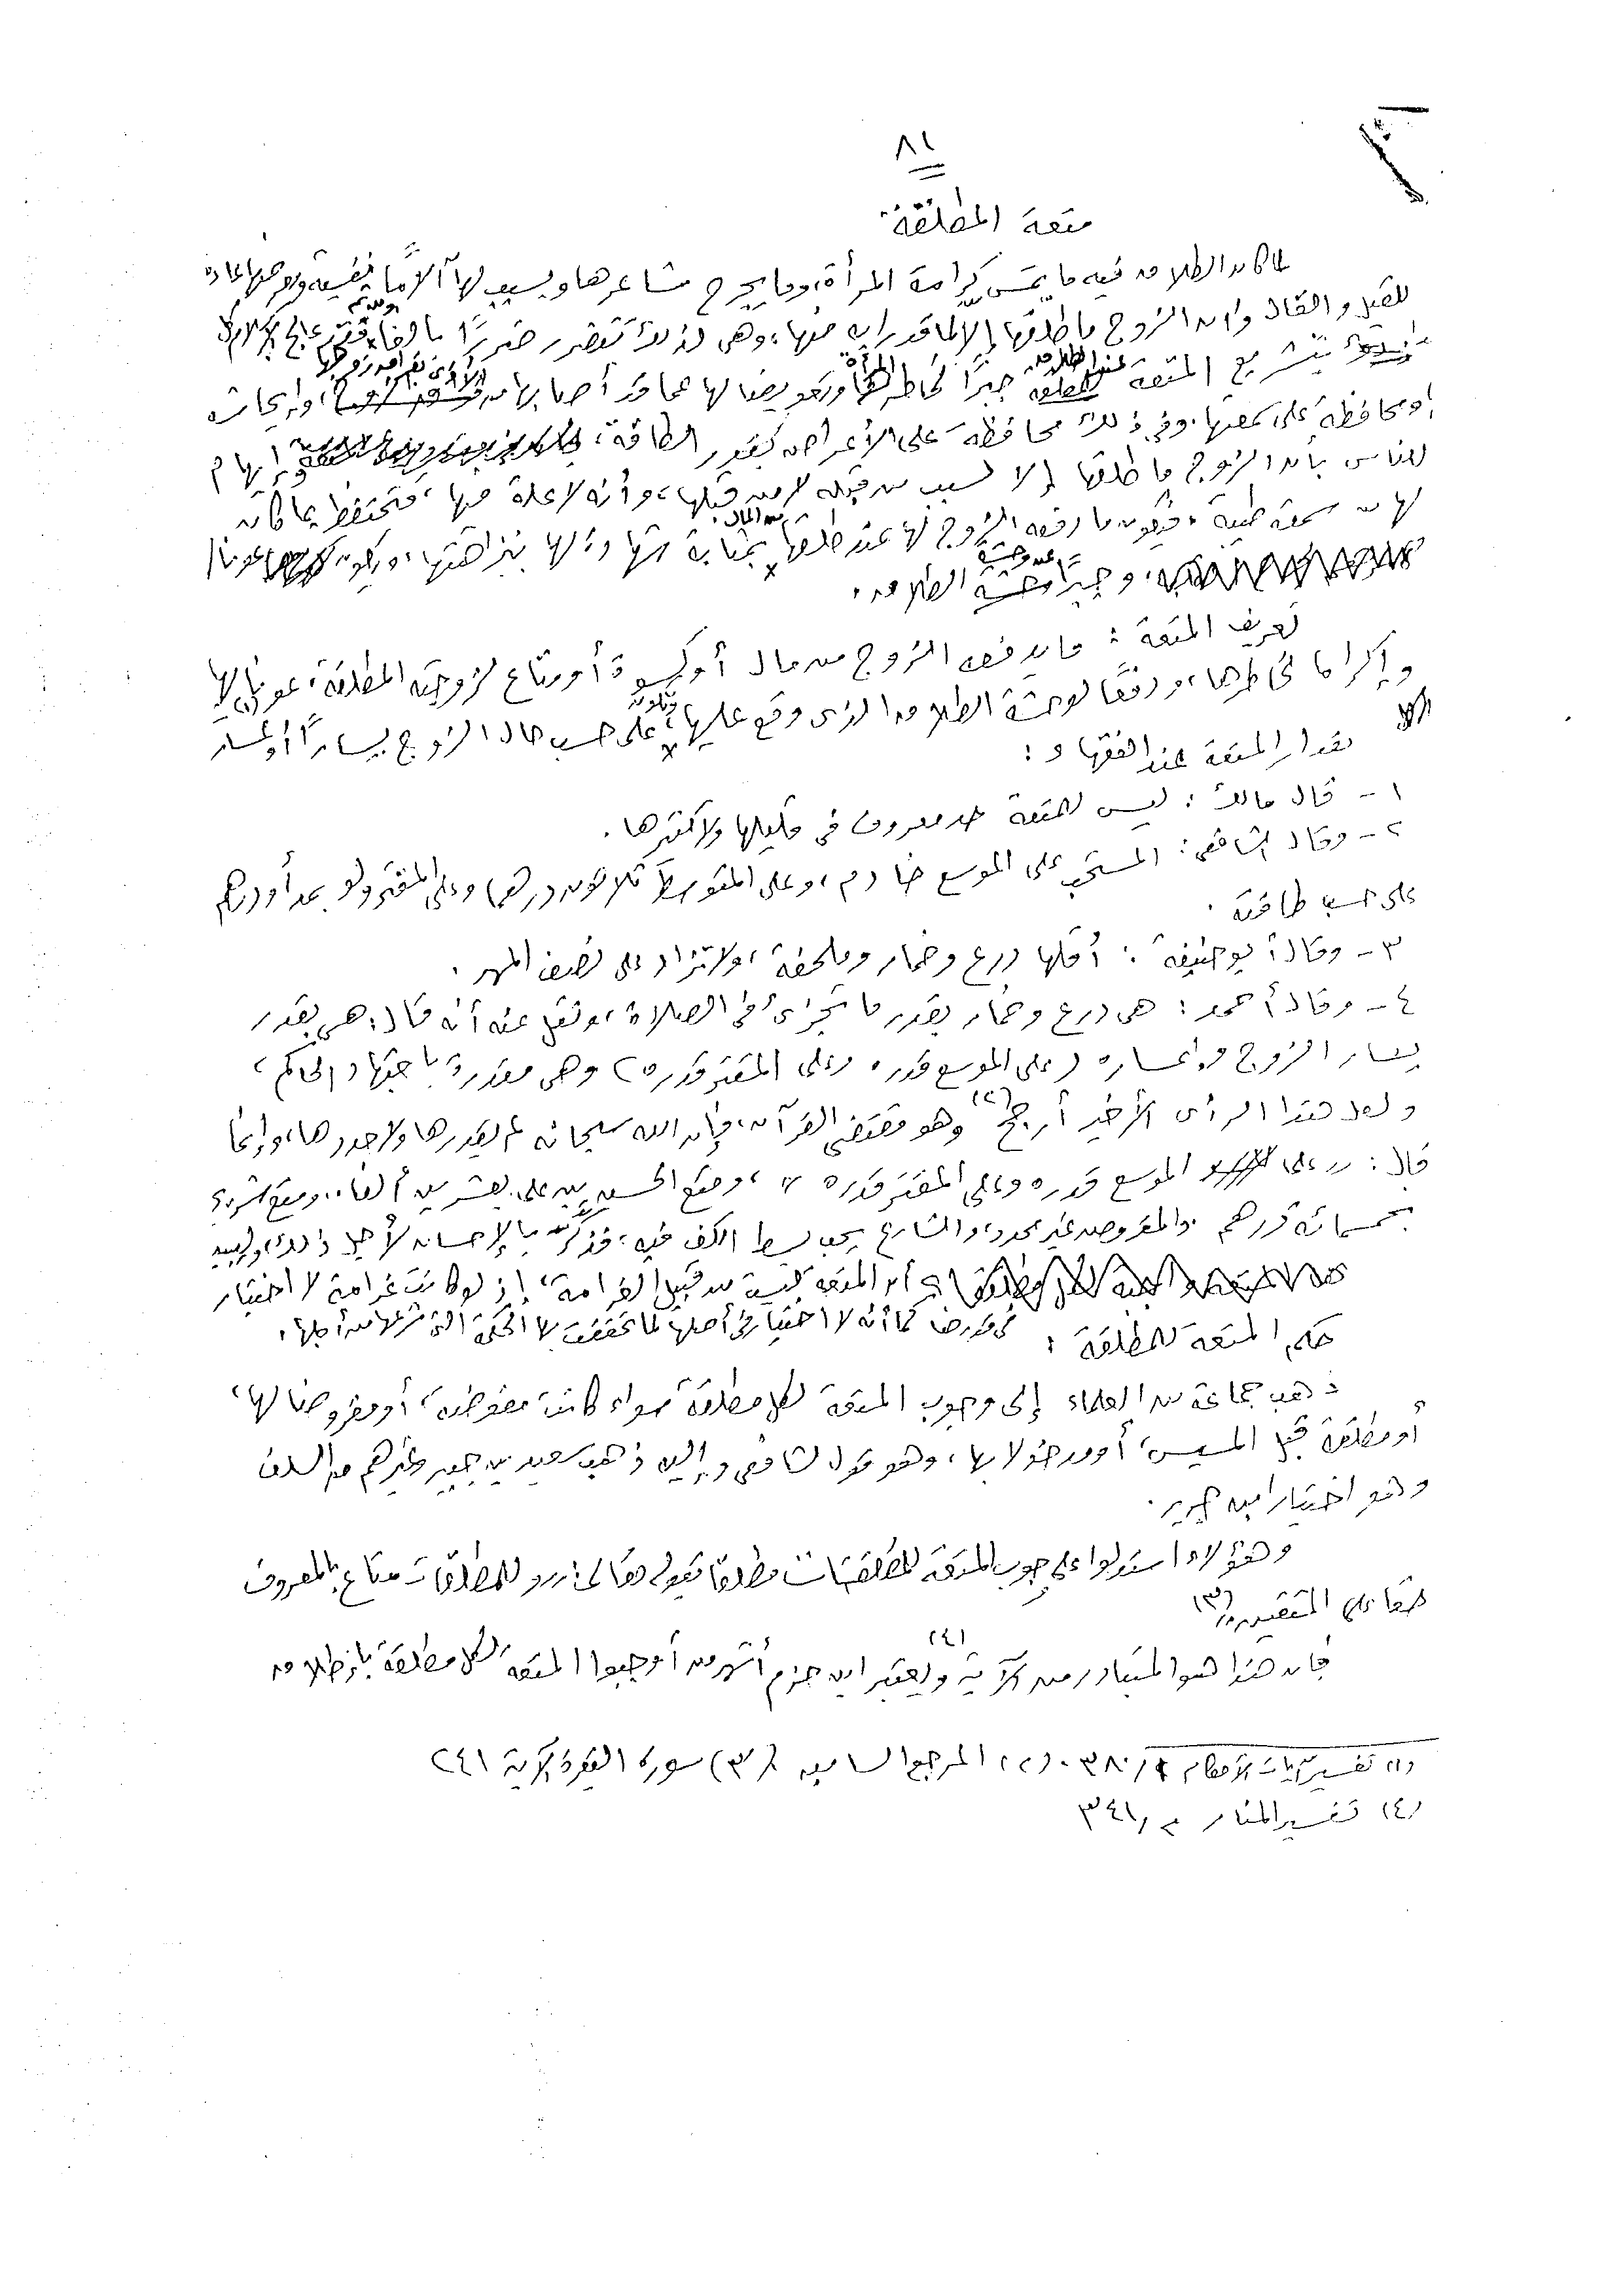 ٨١
متعة المطلقة
لما كان الطلاق فيه ما يمس كرامة المرأة، وما يجرح مشاعرها ويسبب لها آلامًا نفسية
للقيل والقال وأن الزوج ما طلقها إلا لما قد رابه منها، وهي لذلك تتضرر ضررًا بالغا، ولذلك فقد عالج الإسلام
بتشريع المتعة عند الطلاق جبرًا لخاطر المرأة وتعويضا لها عما قد أصابها من
ومحافظة على سمعتها، وفي ذلك محافظة على الأعراض بقدر الطاقة، إيهام
للناس بأن الزوج ما طلقها إلا لسبب من قبله لا من قبلها، وأنه لا علة فيها، فتحتفظ بما كان
لها من سمعة طيبة، فيكون ما دفعه الزوج لها من المال عند طلاقها بمثابة شهادة لها بنزاهتها، ويكون عونا
وجبرا عن وحشة الطلاق.
تعريف المتعة: ما يدفعه الزوج من مال أو كسوة أو متاع لزوجته المطلقة، عونا لها
وإكراما لخاطرها، ودفعًا لوحشة الطلاق الذي وقع عليها، وتكون على حسب حال الزوج يسارًا أو إعسار (١)
مقدار المتعة عند الفقهاء:
١- قال مالك: ليس للمتعة حد معروف في قليلها ولا كثيرها.
٢- وقال الشافعي: المستحب على الموسع خادم، وعلى المتوسط ثلاثون درهما وعلى المقتر ولو بمد أو درهم
على حسب طاقته.
٣- وقال أبو حنيفة: أقلها درع وخمار وملحفة، ولا تزاد على نصف المهر.
٤- وقال أحمد: هي درع وخمار بقدر ما تجزئ في الصلاة، ونقل عنه أنه قال: هي بقدر
يسار الزوج وإعساره (على الموسع قدره وعلى المقتر قدره) وهي مقدرة باجتهاد الحاكم،
ولعل هذا الرأى الأخير أرجح (٢) وهو مقتضى القرآن، فإن الله سبحانه لم يقدرها ولا حددها، وإنما
قال: "على الموسع قدره وعلى المقتر قدره"، ومتع الحسن بن على بعشرين ألفا، ومتع شريح
بخمسمائة درهم. والمفروض غير محدد، والشارع يحب بسط الكف فيه، فذكَّر بالإحسان لأجل ذلك، وليبين
أن المتعة ليست من قبيل الغرامة، إذ لو كانت غرامة لا اختيار
في قدرها كما أنه لا اختيار في أصلها لما تحققت بها الحكمة التي شرعها من أجلها.
حكم المتعة للمطلقة:
ذهب جماعة من العلماء إلى وجوب المتعة لكل مطلقة سواء كانت مفوضة، أو مفروضا لها،
أو مطلقة قبل المسيس، أو مدخولا بها، وهو قول الشافعي وإليه ذهب سعيد بن جبير وغيرهم من السلف
وهو اختيار ابن جرير.
وهؤلاء استدلوا على وجوب المتعة للمطلقات مطلقا بقوله تعالى: "وللمطلقات متاع بالمعروف
حقا على المتقين" (٣)
فإن هذا هو المتبادر من الآية ويعتبر ابن حزم أشهر من أوجبوا المتعة لكل مطلقة بأى طلاق (٤)
(١) تفسير آيات الأحكام ٣٨٠/١ (٢) المرجع السابق (٣) سورة البقرة الآية ٢٤١
(٤) تفسير المنار ٣٤١/٢